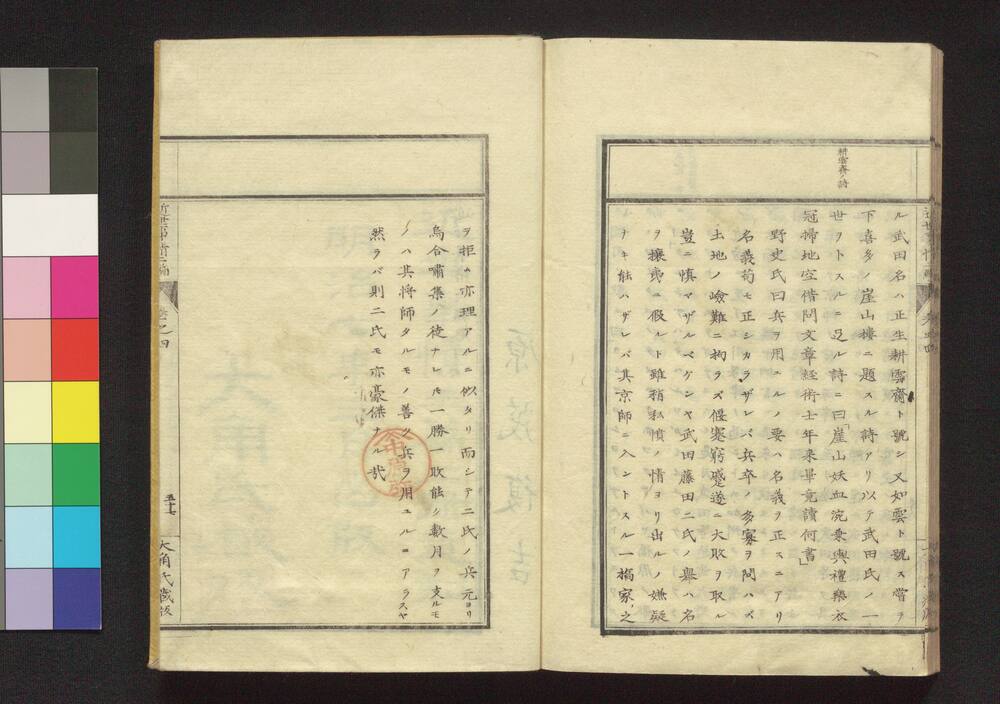 耕雲齋ノ詩
ル武田名ハ正生耕雲齋ト號シ又如雲ト號ス嘗ヲ
下喜多ノ崖山樓ニ題スル詩アリ以テ武田氏ノ一
世ヲトスルニ足ル詩ニ曰「崖山妖血浣乗輿禮樂衣
冠掃地空借問文章經術士年來畢竟讀何書」
野史氏曰兵ヲ用ユルノ要ハ名義ヲ正スニアリ
名義苟モ正シカラザレバ兵卒ノ多寡ヲ問ハズ
土地ノ嶮難ニ拘ラズ偃蹇窮蹙遂ニ大敗ヲ取ル
豈ニ慎マザルベケンヤ武田藤田二氏ノ舉ハ名
ヲ攘夷ニ假ルト雖稍私憤ノ情ヨリ出ルノ嫌疑
ナキ能ハザレバ其京師ニ入ントスル一橋家之
ヲ拒ム亦理アルニ似タリ而シテ二氏ノ兵元ヨリ
烏合嘯集ノ徒ナレ𪜈一勝一敗能ク數月ヲ支ルモ
ノハ其將師タルモノ善ク兵ヲ用ユルヿアラスヤ
然ラバ則二氏モ亦豪傑ナル哉
近世事情二編
卷之四
五十七
大角氏藏版